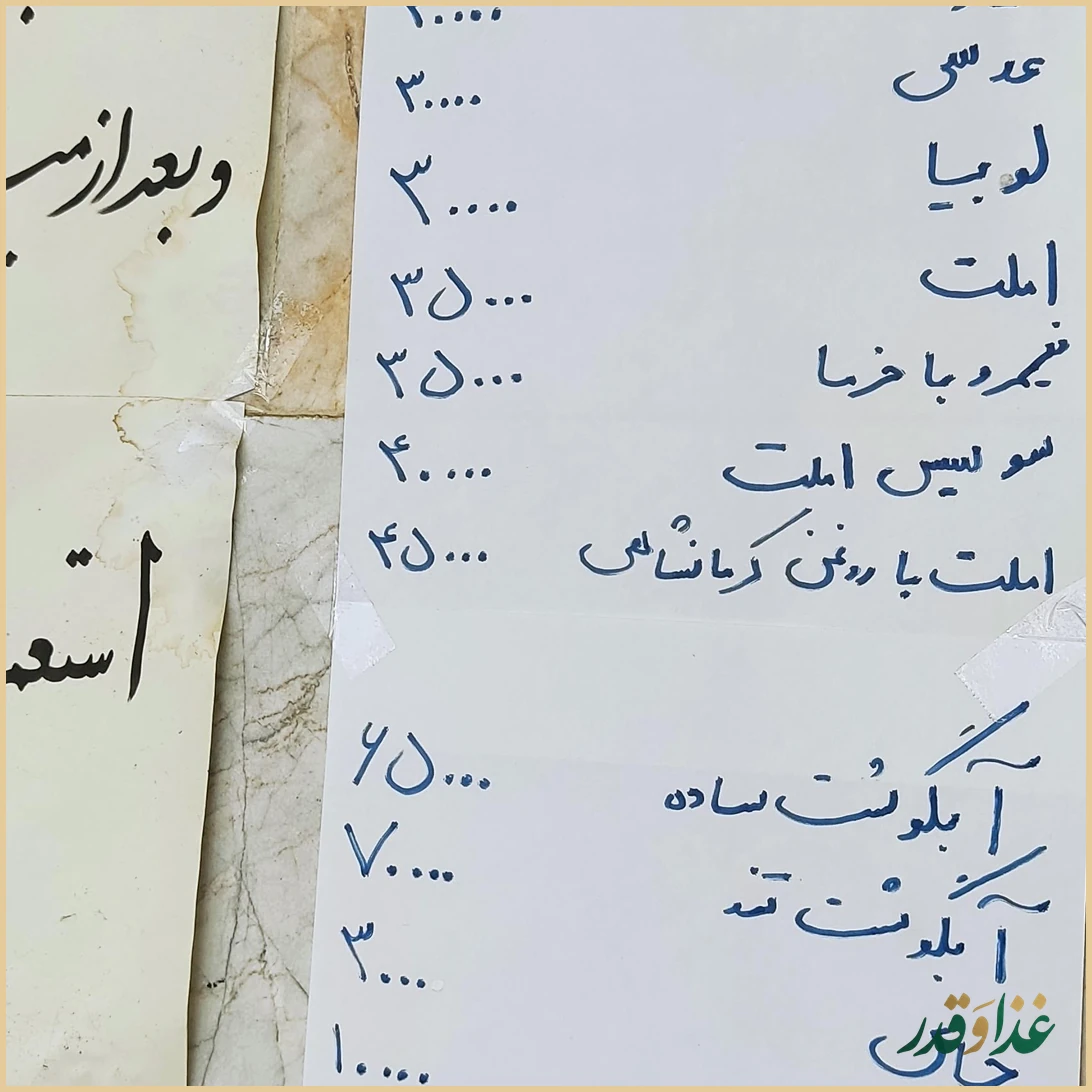 عدسی ۳۰۰۰۰
لوبیا ۳۰۰۰۰
املت ۳۵۰۰۰
نیمرو با خرما ۳۵۰۰۰
سوسیس املت ۴۰۰۰۰
املت با روغن کرمانشاهی ۴۵۰۰۰
آبگوشت ساده ۶۵۰۰۰
آبگوشت تند ۷۰۰۰۰
۳۰۰۰
۱۰۰۰۰
و بعد از
غذا و قدر